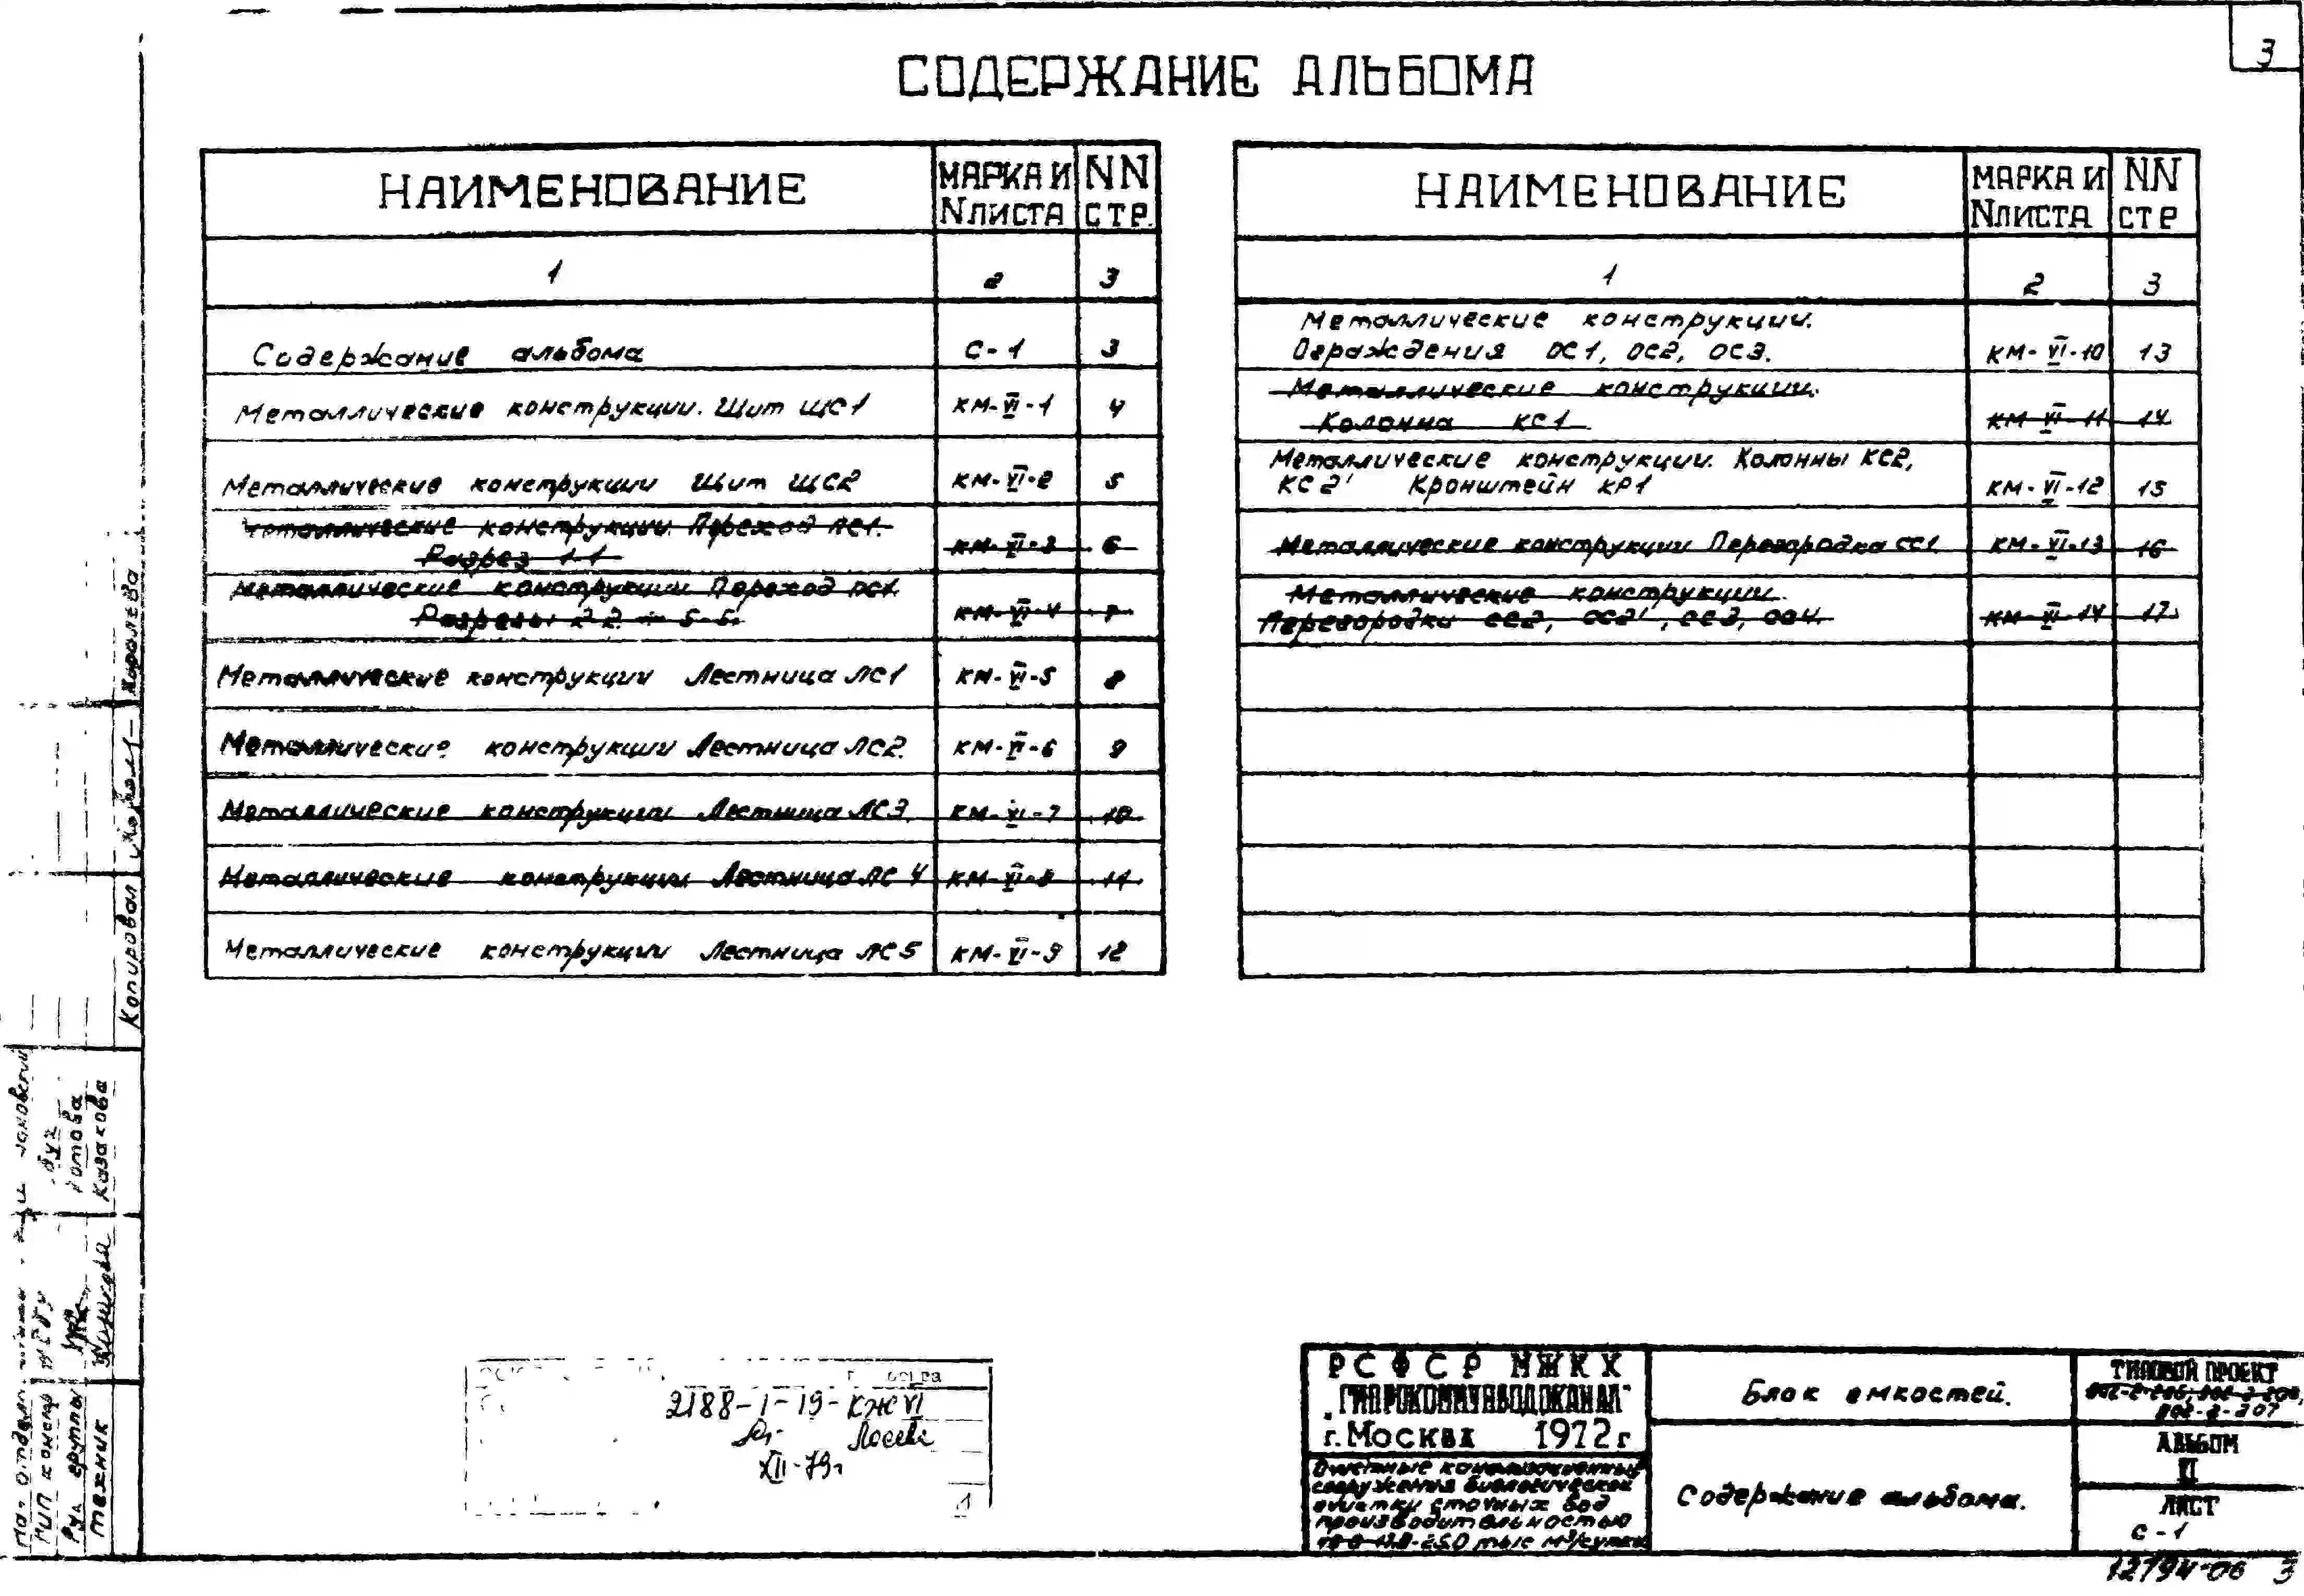 3
СОДЕРЖАНИЕ АЛЬБОМА
НАИМЕНОВАНИЕ МАРКА И NЛИСТА NN СТР.
1 2 3
Содержание альбома С-1 3
Металлические конструкции. Щит ЩС1 КМ-VI-1 4
Металлические конструкции Щит ЩС2 КМ-VI-2 5
Металлические конструкции. Переход ПС1.
Разрез 1-1 КМ-VI-3 6
Металлические конструкции Переход ПС1.
Разрезы 2-2 ÷ 5-5. КМ-VI-4 7
Металлические конструкции Лестница ЛС1 КМ-VI-5 8
Металлические конструкции Лестница ЛС2. КМ-VI-6 9
Металлические конструкции Лестница ЛС3. КМ-VI-7 10
Металлические конструкции Лестница ЛС4 КМ-VI-8 11
Металлические конструкции Лестница ЛС5 КМ-VI-9 12
НАИМЕНОВАНИЕ МАРКА И NЛИСТА NN СТР
1 2 3
Металлические конструкции.
Ограждения ОС1, ОС2, ОС3. КМ-VI-10 13
Металлические конструкции.
Колонна КС1 КМ-VI-11 14
Металлические конструкции. Колонны КС2,
КС2' Кронштейн КР1 КМ-VI-12 15
Металлические конструкции Перегородка СС1 КМ-VI-13 16
Металлические конструкции.
Перегородки СС2, СС2', СС3, СС4. КМ-VI-14 17
Копировал Королева
Казакова
Рук группы
техник
2188-I-19-КЖVI
XII-79г
1
РСФСР МЖКХ
„ГИПРОКОММУНВОДОКАНАЛ"
г. Москва 1972г
Очистные канализационные
сооружения биологической
очистки сточных вод
производительностью
тыс м³/сутки
Блок емкостей.
Содержание альбома.
ТИПОВОЙ ПРОЕКТ
902-2-207
АЛЬБОМ
VI
ЛИСТ
С-1
12794-06 3